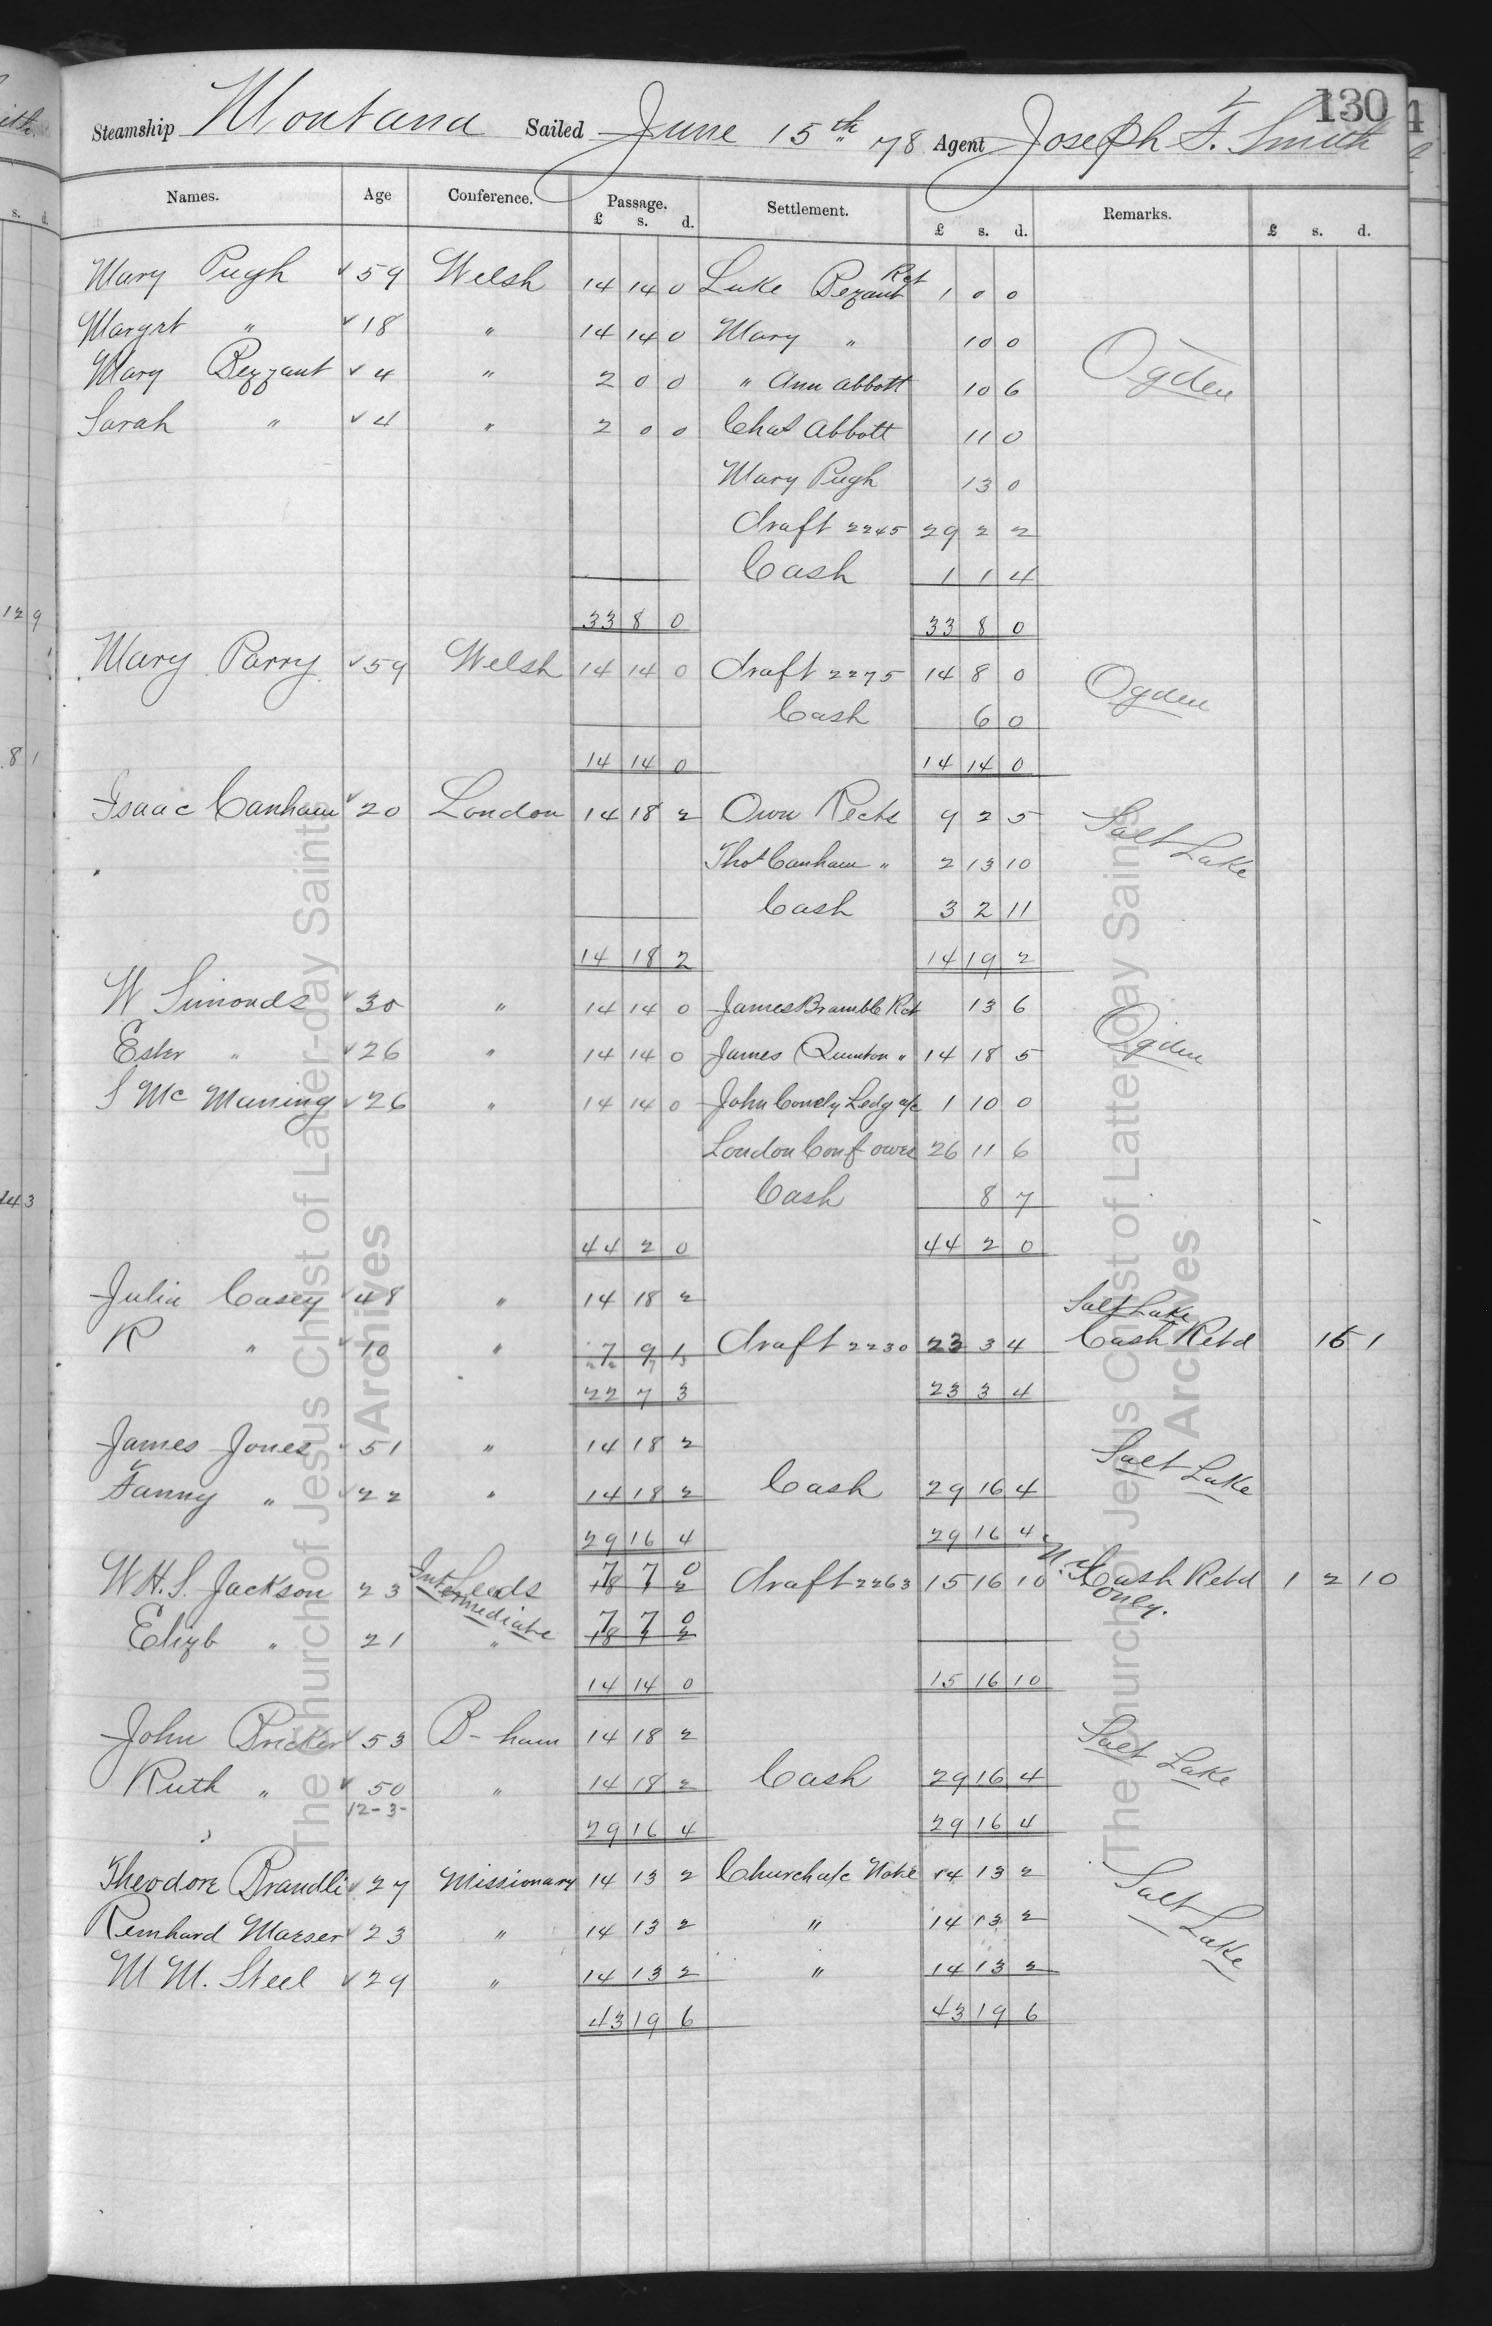 130
Steamship Montana Sailed June 15th 78 Agent Joseph F. Smith
Names. Age Conference. Passage. Settlement. Remarks.
£ s. d. £ s. d. £ s. d.
Mary Pugh 59 Welsh 14 14 0 Luke Bezant Rct 1 0 0
Margrt " 18 " 14 14 0 Mary " 10 0
Mary Bezzant 4 " 2 0 0 " Ann Abbott 10 6 Ogden
Sarah " 4 " 2 0 0 Chas Abbott 11 0
Mary Pugh 13 0
draft 2245 29 2 2
Cash 1 1 4
33 8 0 33 8 0
Mary Parry 59 Welsh 14 14 0 draft 2275 14 8 0 Ogden
Cash 6 0
14 14 0 14 14 0
Isaac Canham 20 London 14 18 2 Own Rects 9 2 5 Salt Lake
Thos Canham " 2 13 10
Cash 3 2 11
14 18 2 14 19 2
W Simonds 30 " 14 14 0 James Bramble Rct 13 6 Ogden
Ester " 26 " 14 14 0 James Quinton " 14 18 5
S Mc Manning 26 " 14 14 0 John Conely Ledg a/c 1 10 0
London Conf owes 26 11 6
Cash 8 7
44 2 0 44 2 0
Julia Casey 48 " 14 18 2 Salt Lake
R " 10 " 7 9 1 draft 2230 23 3 4 Cash Retd 16 1
22 7 3 23 3 4
James Jones 51 " 14 18 2 Salt Lake
Fanny " 22 " 14 18 2 Cash 29 16 4
29 16 4 29 16 4
W. H. S. Jackson 23 Leeds Intermediate 7 7 0 draft 2263 15 16 10 N.Y. only. Cash Retd 1 2 10
Elizb " 21 " 7 7 0
14 14 0 15 16 10
John Pricker 53 B-ham 14 18 2 Salt Lake
Ruth " 50 " 14 18 2 Cash 29 16 4
12-3-
29 16 4 29 16 4
Theodore Brandli 27 Missionary 14 13 2 Church a/c Note 14 13 2 Salt Lake
Reinhard Maeser 23 " 14 13 2 " 14 13 2
M M. Steel 29 " 14 13 2 " 14 13 2
43 19 6 43 19 6
The Church of Jesus Christ of Latter-day Saints
Archives
The Church of Jesus Christ of Latter-day Saints
Archives